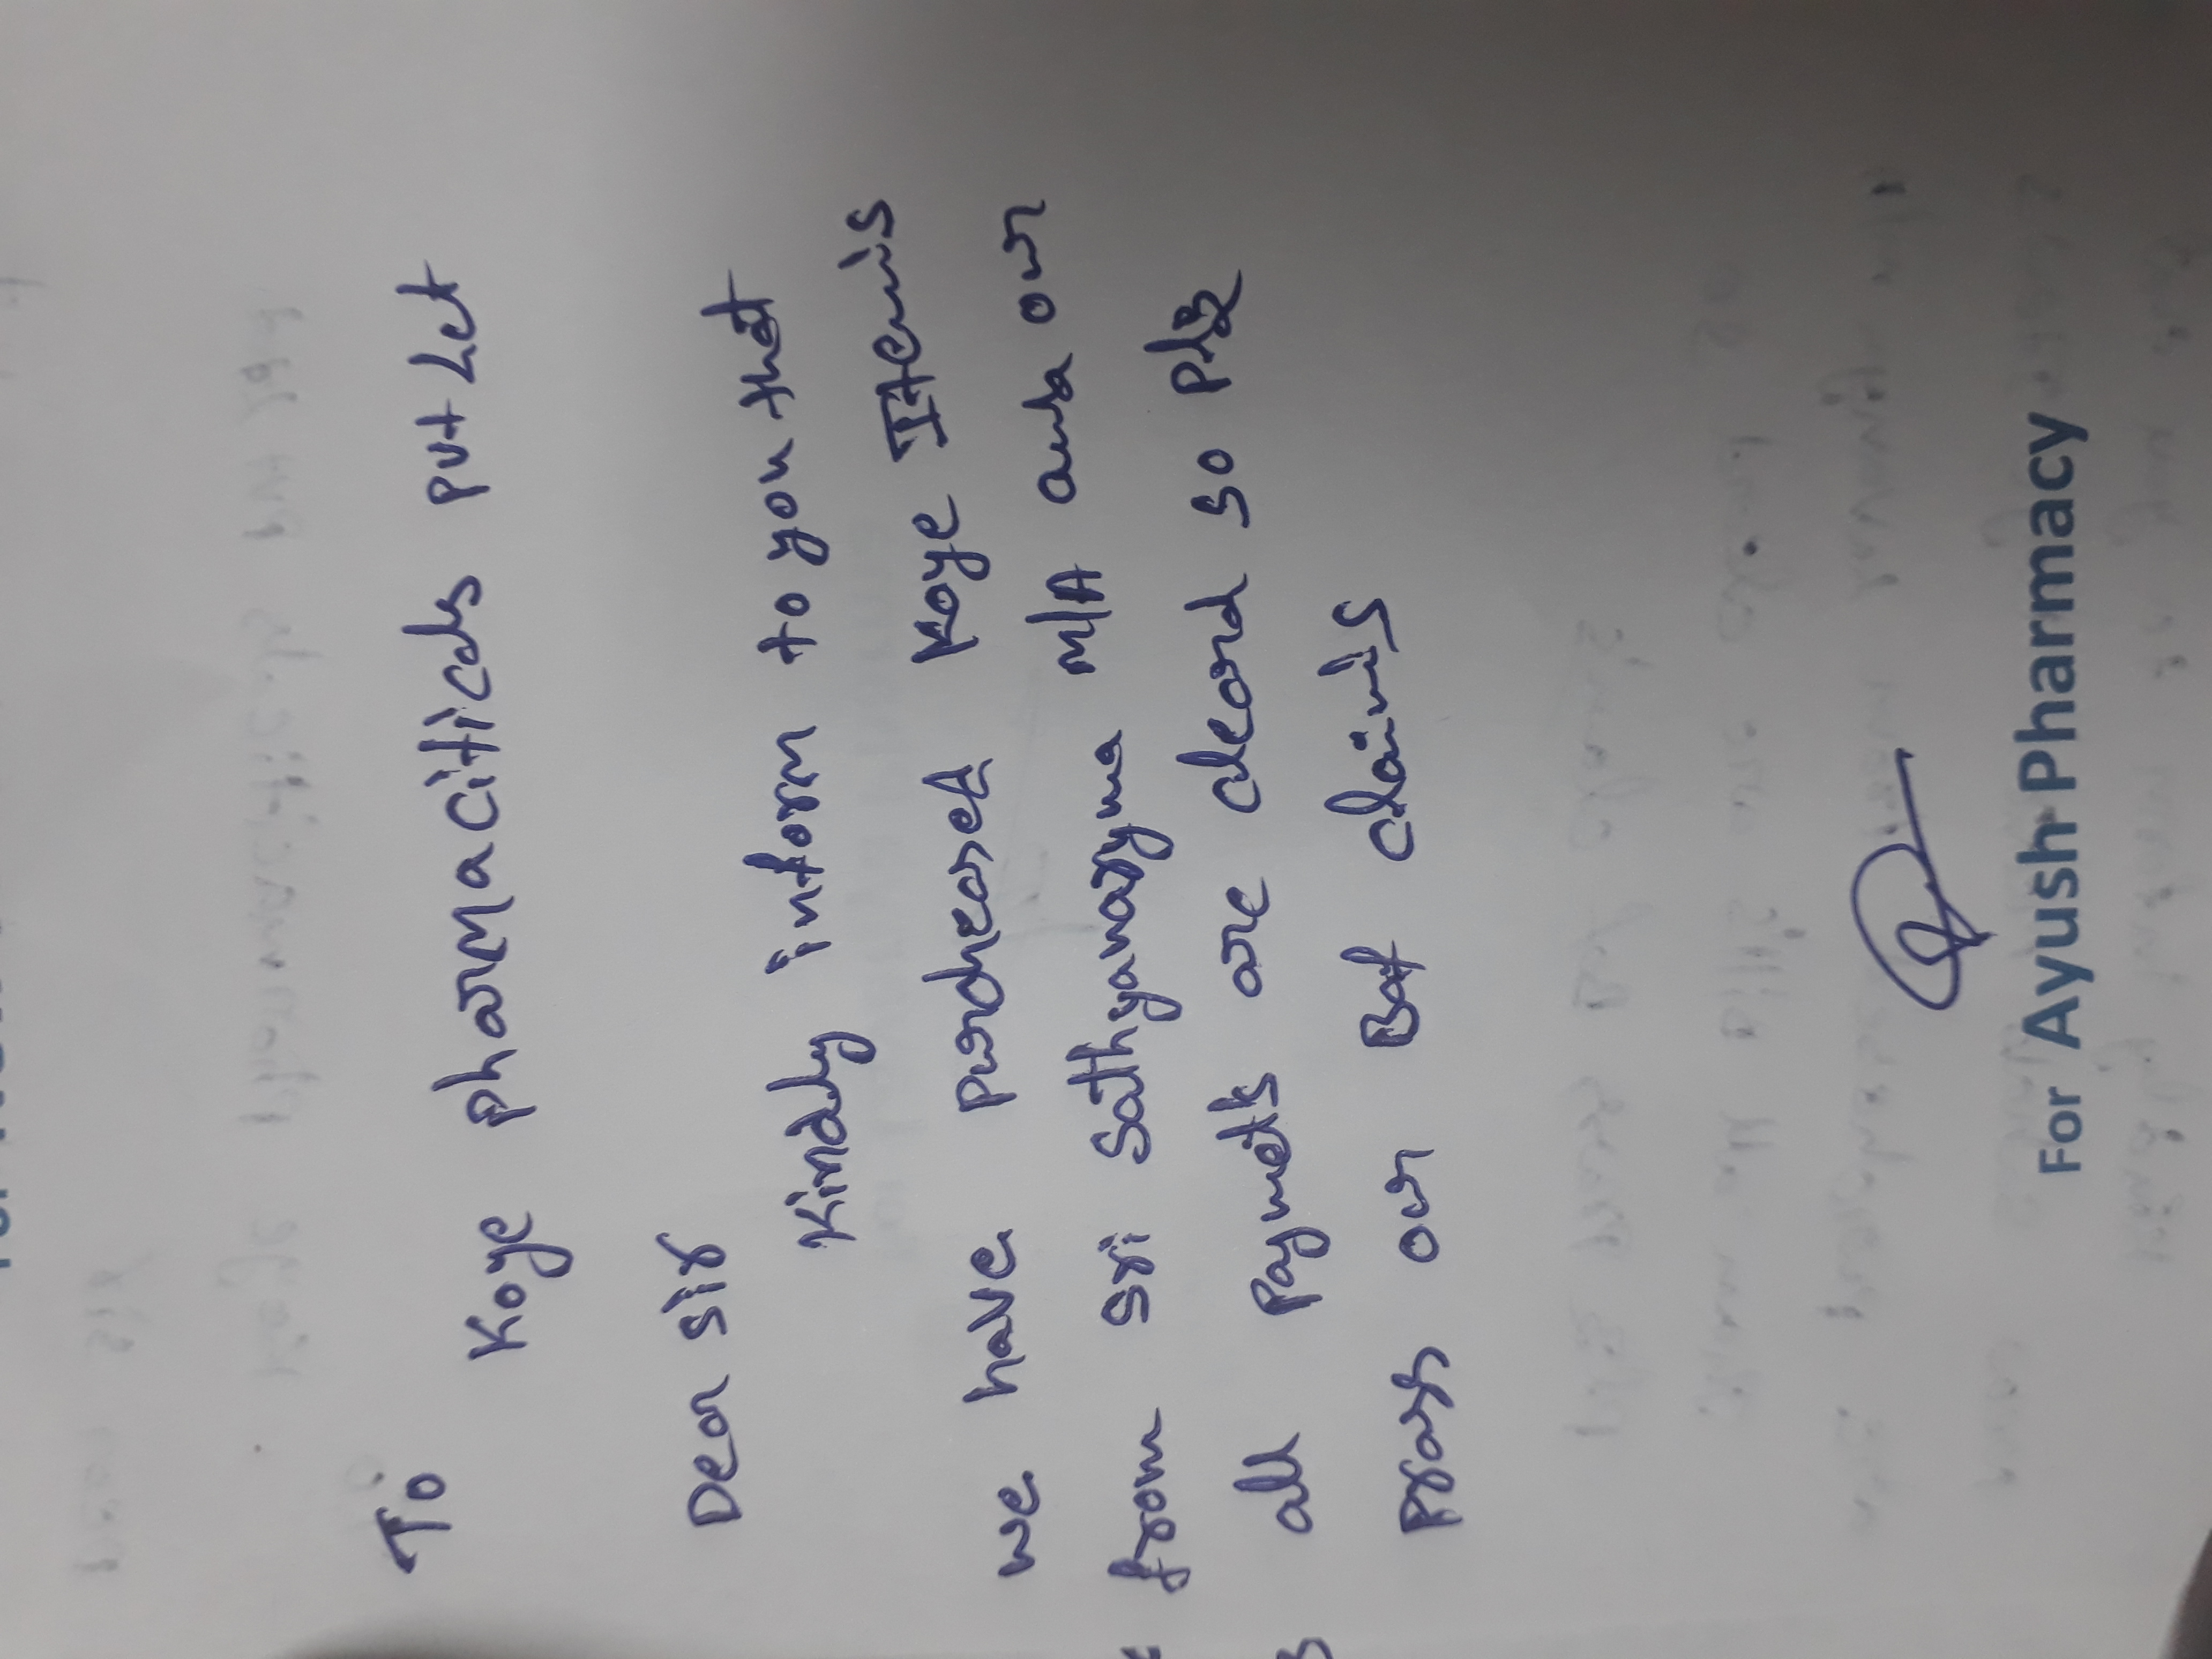 To
Koye pharmacitticals pvt Let
Dear sir
Kindly inform to you that
we have purchased Koye Items
from sri sathyanarayana M/A and our
all payments are cleard so plz
our Bat claims
For Ayush Pharmacy